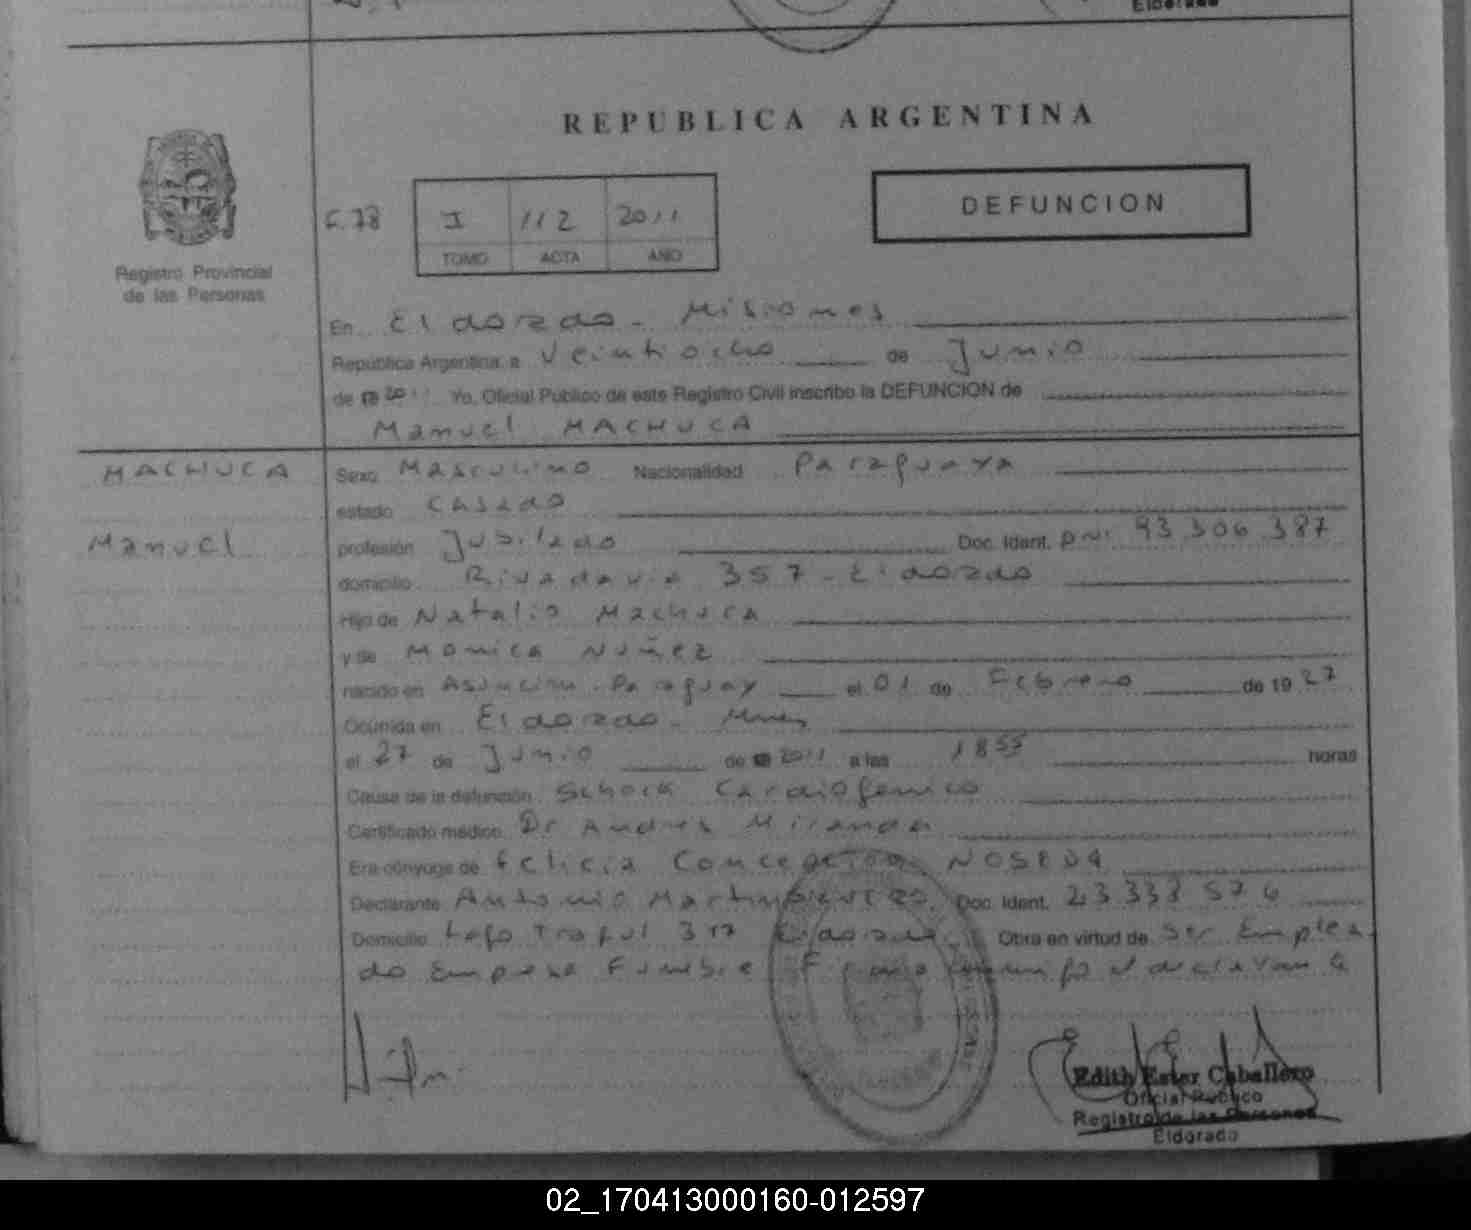 Eldorado
REPUBLICA ARGENTINA
DEFUNCION
F. 78 I 112 2011
TOMO ACTA AÑO
Registro Provincial
de las Personas
En Eldorado - Misiones
República Argentina a Veintiocho de Junio
de 2011 Yo, Oficial Público de este Registro Civil inscribo la DEFUNCION de
Manuel MACHUCA
MACHUCA
Manuel
Sexo Masculino Nacionalidad Paraguaya
estado Casado
profesión Jubilado Doc. Ident. DNI 93 306 387
domicilio Rivadavia 357 - Eldorado
Hijo de Natalio Machuca
y de Monica Nuñez
nacido en Asuncion - Paraguay el 01 de Febrero de 1927
Ocurrida en Eldorado - Mnes
el 27 de Junio de 2011 a las 1855 horas
Causa de la defunción Schock Cardiogenico
Certificado médico Dr Andres Miranda
Era cónyuge de Felicia Concepcion
Declarante Antonio Doc. Ident. 23 333 576
Domicilio Lago Traful 317 Eldorado Obra en virtud de Ser Emplea
do Empresa Funebre Firma el declarante
Edith Ester Caballero
Oficial Público
Registro de las Personas
Eldorado
02_170413000160-012597